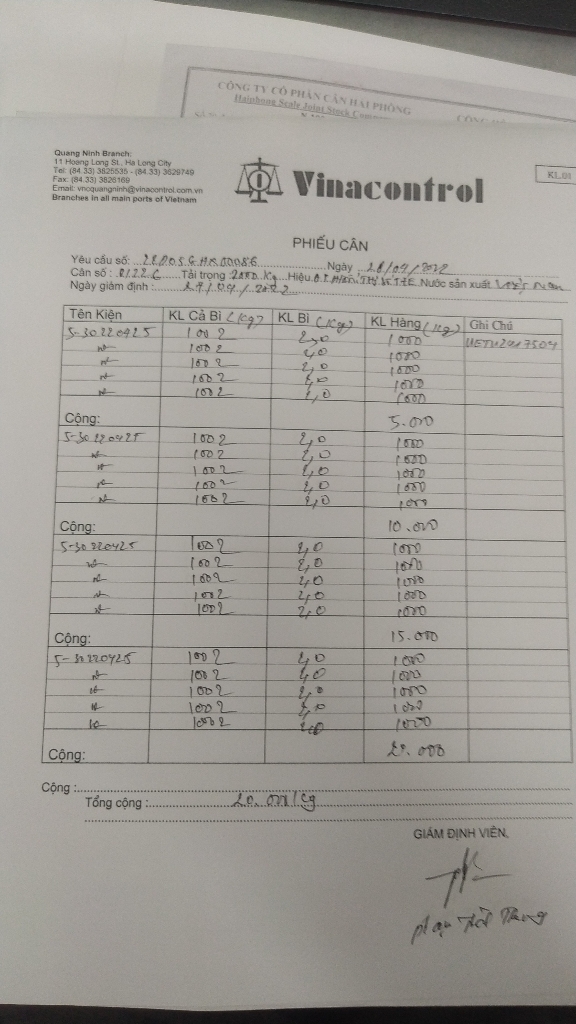 CÔNG TY CỔ PHẦN CÂN HẢI PHÒNG
Haiphong Scale Joint Stock
Quang Ninh Branch:
11 Hoang Long St., Ha Long City
Tel: (84.33) 3825535 - (84.33) 3829749
Fax: (84.33) 3826169
Email: vncquangninh@vinacontrol.com.vn
Branches in all main ports of Vietnam
Vinacontrol
KL.01
PHIẾU CÂN
Yêu cầu số: Ngày 28/04/2022
Cân số : Tải trọng 2000 Kg Hiệu Nước sản xuất
Ngày giám định : 29/04/2022
Tên Kiện KL Cả Bì (Kg) KL Bì (Kg) KL Hàng (Kg) Ghi Chú
5-30220425 1002 2,0 1000
1002 2,0 1000
1002 2,0 1000
1002 2,0 1000
1002 2,0 1000
Cộng: 5.000
5-30220425 1002 2,0 1000
1002 2,0 1000
1002 2,0 1000
1002 2,0 1000
1002 2,0 1000
Cộng: 10.000
5-30220425 1002 2,0 1000
1002 2,0 1000
1002 2,0 1000
1002 2,0 1000
1002 2,0 1000
Cộng: 15.000
5-30220425 1002 2,0 1000
1002 2,0 1000
1002 2,0 1000
1002 2,0 1000
1002 2,0 1000
Cộng: 20.000
Cộng :
Tổng cộng : 20.000 Kg
GIÁM ĐỊNH VIÊN,